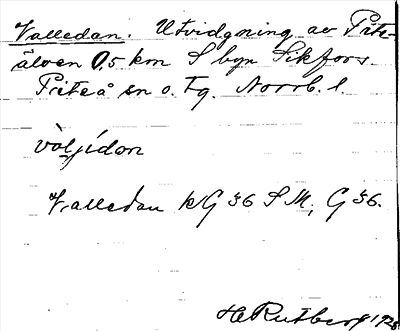 Valledan. Utvidgning av Pite-
älven 0,5 km S byn Sikfors.
Piteå sn o. Tg. Norrb. l.
vàljídon
Valledan kG 36 S M, G 36.
H Rutberg 1928